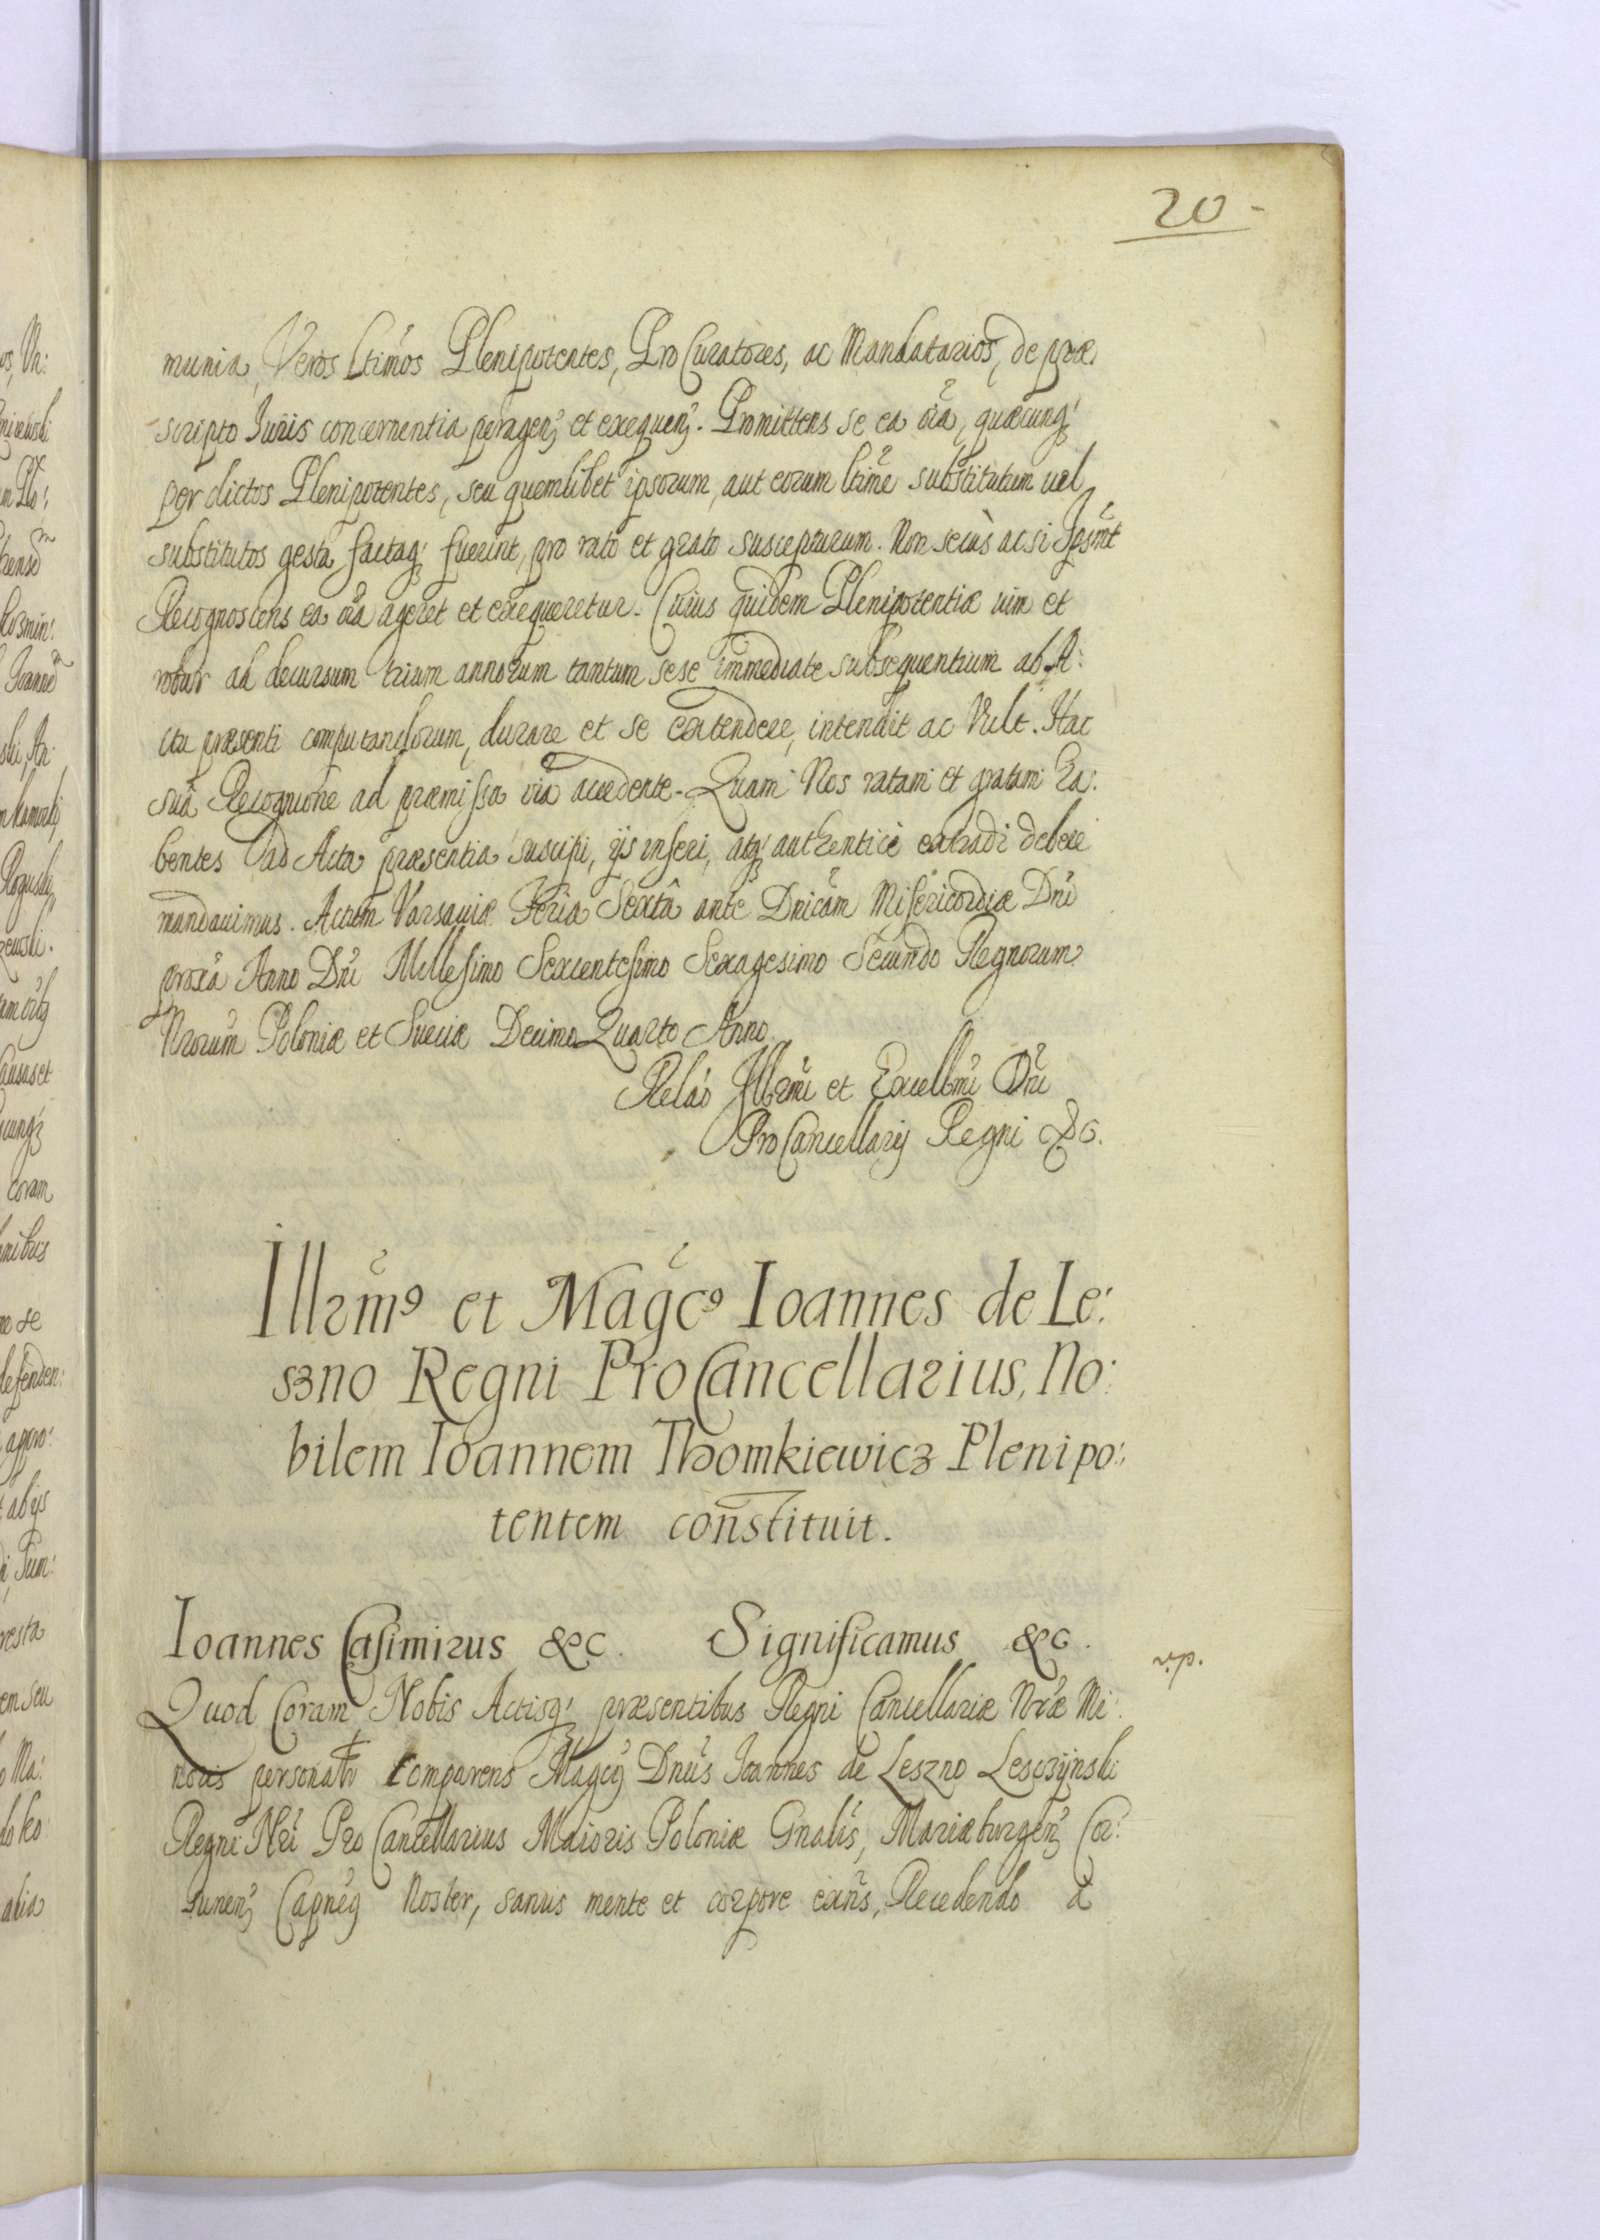 20
munia, Veros Ltimos Plenipotentes, ProCuratores, ac Mandatarios, de præ.
scripto Iuris concernentia peragen: et exequen: Promittens se ea oia, quæcunq;
per dictos Plenipotentes, seu quemlibet ipsorum, aut eorum ltime substitutum uel
substitutos gesta factaq; fuerint, pro rato et grato suscepturum. Non secùs ac si Ipsmt
Recognoscens ea oia ageret et exequeretur. Cuius quidem Plenipotentiæ uim et
robur ad decursum trium annorum tantum sese immediate subsequentium ab A:
ctu præsenti computandorum, durare et se extendere, intendit ac Vult. Hac
suâ Recognione ad præmissa oia accedente. Quam Nos ratam et gratam ha:
bentes ad Acta præsentia suscipi, ijs inseri, atq; authenticè extradi debere
mandauimus. Actum Varsauiæ Feria Sextâ ante Dnicam Misericordiæ Dni
proxa Anno Dni Millesimo Sexcentesimo Sexagesimo Secundo Regnorum
Nrorum Poloniæ et Sueciæ Decimo Quarto Anno.
Relao Illrmi et Excellmi Dni
ProCancellarij Regni &c.
Illrmꝰ et Magcꝰ Ioannes de Le:
szno Regni ProCancellarius, No:
bilem Ioannem Thomkiewicz Plenipo:
tentem constituit.
Ioannes Casimirus &c. Significamus &c.
rp.
Quod Coram Nobis Actisq; præsentibus Regni Cancellariæ Nræ Mi:
noris personalr Comparens Magcꝰ Dnus Ioannes de Leszno Lesczijnski
Regni Nri ProCancellarius Maioris Poloniæ Gnalis, Mariæburgen: Cor:
sunen: Capneꝰ Noster, sanus mente et corpore exns, Recedendo à